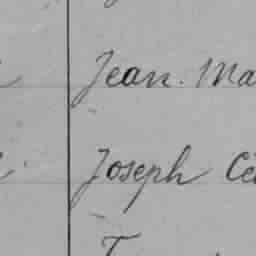 Jean Ma
Joseph Cé